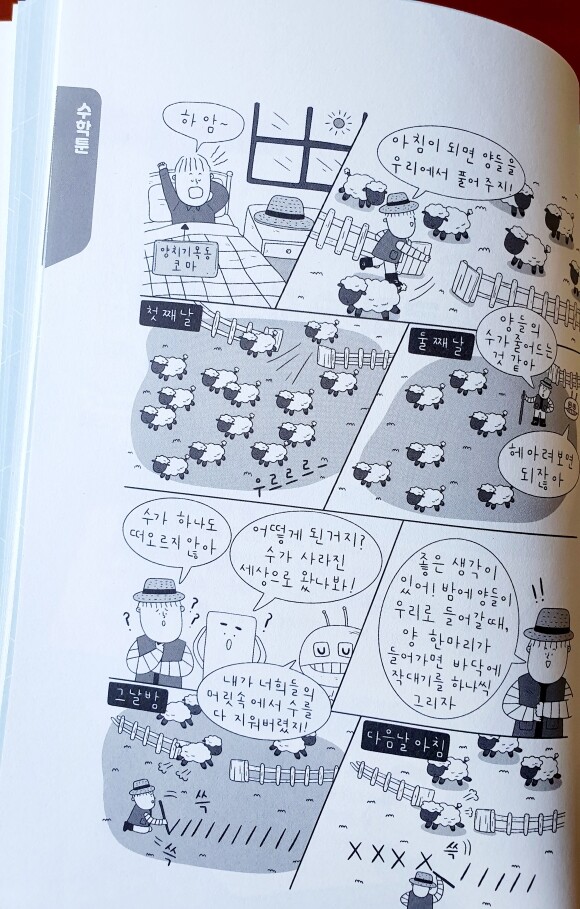 수학툰
하 암~
양치기목동
코마
아침이 되면 양들을
우리에서 풀어 주지!
첫째날
우르르르
둘째날
양들의
수가 줄어드는
것 같아
헤아려보면
되잖아
수가 하나도
떠오르지 않아
?
?
?
어떻게 된거지?
수가 사라진
세상으로 왔나봐!
내가 너희들의
머릿속에서 수를
다 지워버렸지!
좋은 생각이
있어! 밤에 양들이
우리로 들어갈때,
양 한마리가
들어가면 바닥에
작대기를 하나씩
그리자
!!
그날밤
쓱
쓱
다음날 아침
쓱
X X X X